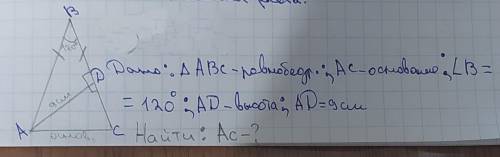 B
120°
D Дано: ΔABC-равнобедр.; AC-основание; ∠B=
= 120°; AD-высота; AD=9см
9см
A C Найти: AC-?